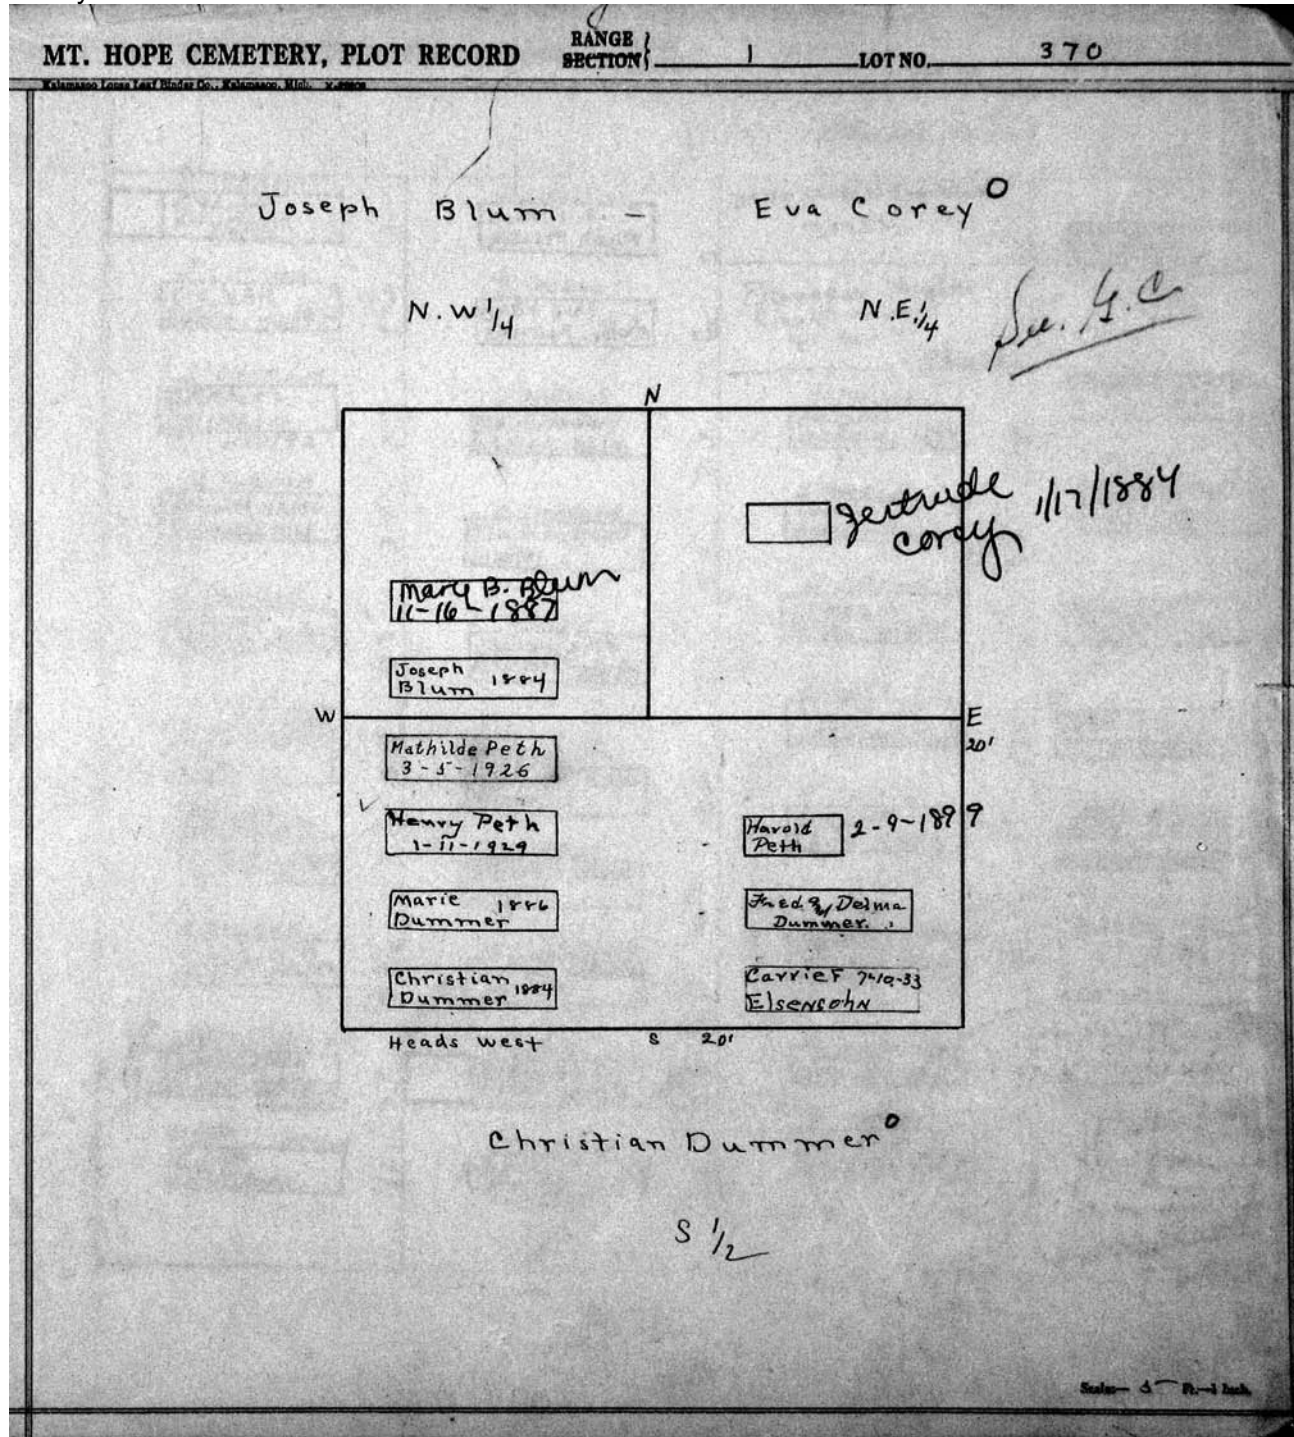 MT. HOPE CEMETERY, PLOT RECORD RANGE SECTION 1 LOT NO. 370
Kalamazoo Loose Leaf Binder Co., Kalamazoo, Mich.
Joseph Blum — Eva Corey O
N.W 1/4 N.E. 1/4 See. G.C
N
Gertrude 1/17/1884
Corey
Mary B. Blum
11-16-1887
Joseph 1884
Blum
W E
20'
Mathilde Peth
3-5-1926
Henry Peth
1-11-1929
Harold 2-9-1899
Peth
Marie 1886
Dummer
Fred. & Delma
Dummer.
Christian 1884
Dummer
Carrie F 7-10-33
Elsensohn
Heads west S 20'
Christian Dummer O
S 1/2
Scale— 5 Ft.—1 Inch.